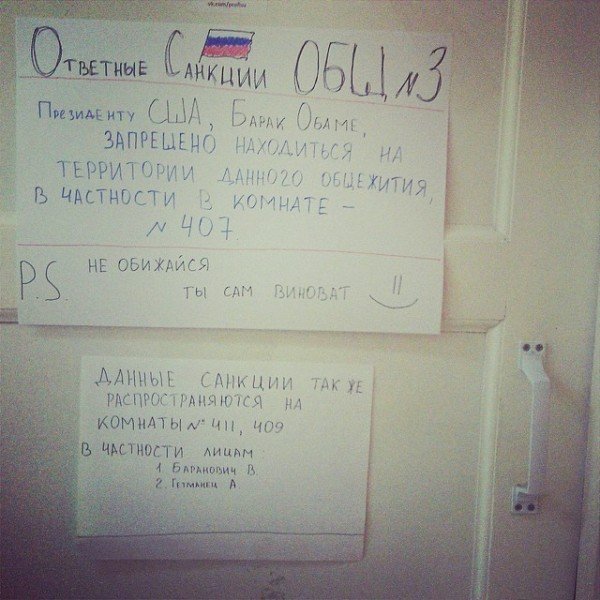 vk.com/profsu
Ответные Санкции ОБЩ №3
Президенту США, Барак Обаме,
ЗАПРЕЩЕНО НАХОДИТЬСЯ НА
ТЕРРИТОРИИ ДАННОГО ОБЩЕЖИТИЯ,
В ЧАСТНОСТИ В КОМНАТЕ –
№ 407
P.S. НЕ ОБИЖАЙСЯ
ТЫ САМ ВИНОВАТ
ДАННЫЕ САНКЦИИ ТАК ЖЕ
РАСПРОСТРАНЯЮТСЯ НА
КОМНАТЫ № 411, 409
В ЧАСТНОСТИ ЛИЦАМ
1 БАРАНОВИЧ В.
2. ГЕТМАНЕЦ А